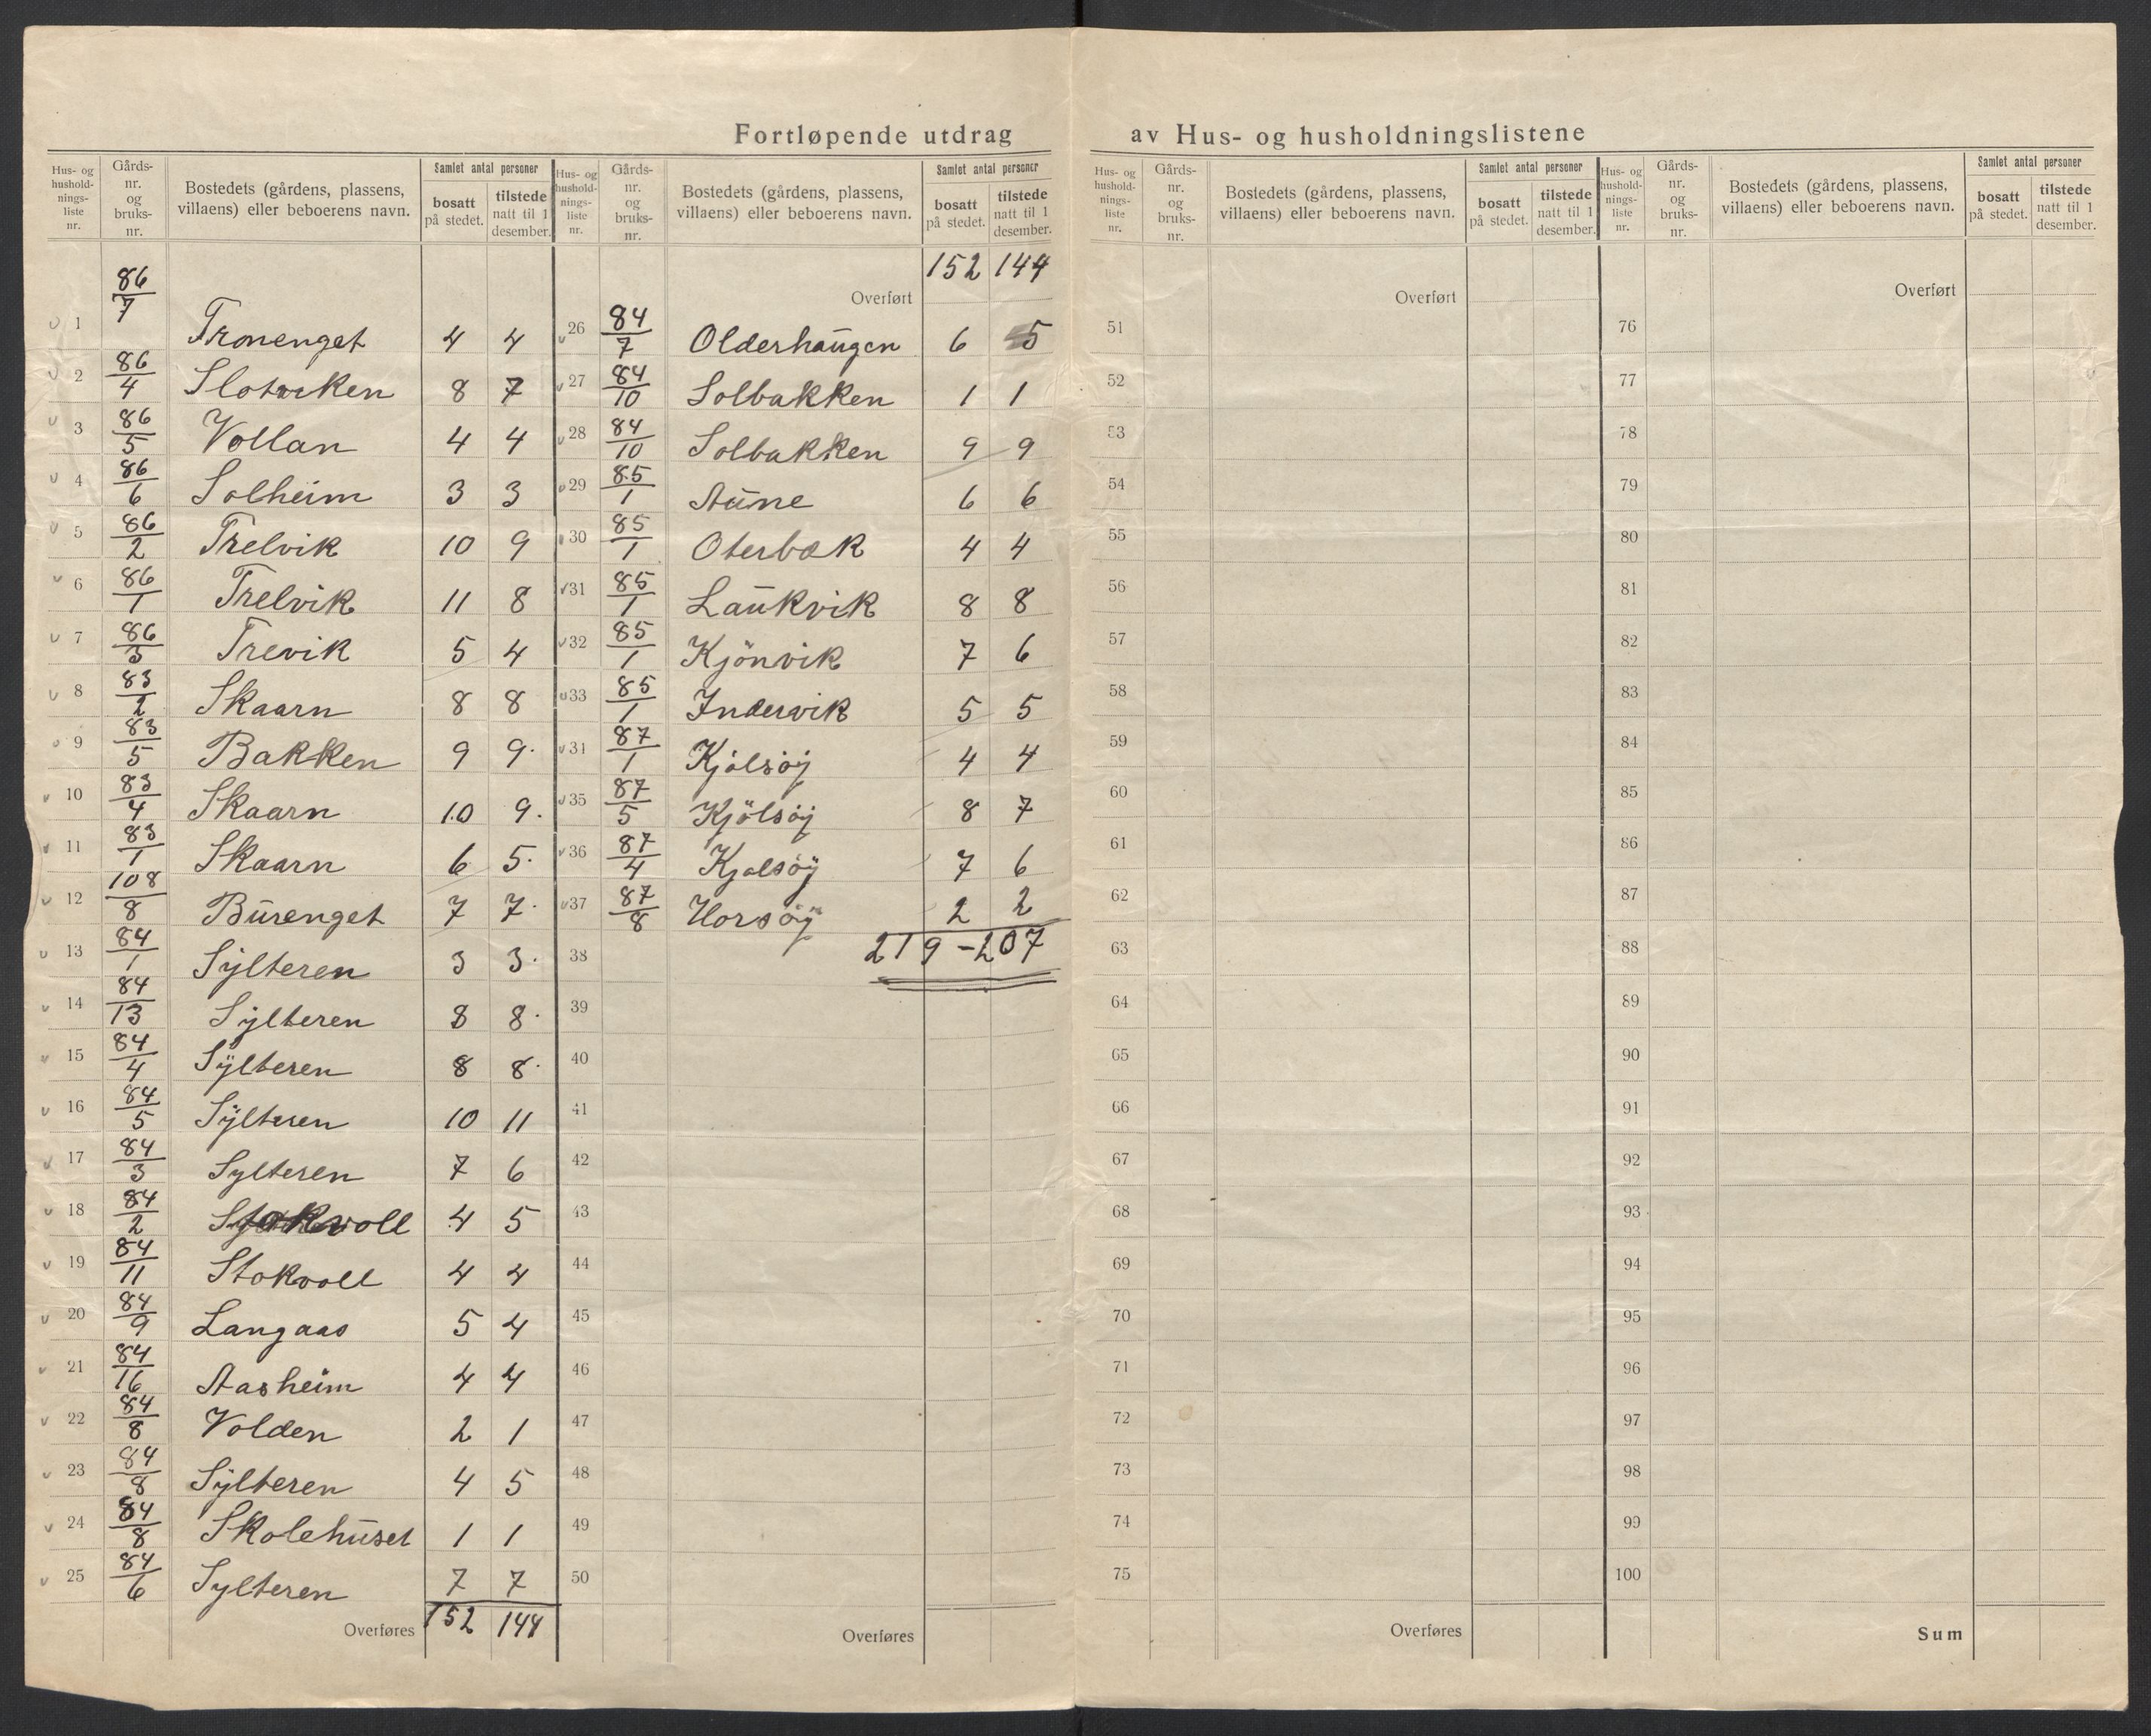 Fortløpende utdrag av Hus- og husholdningslistene
Hus- og hushold- nings- liste nr. | Gårds- nr. og bruks- nr. | Bostedets (gårdens, plassens, villaens) eller beboerens navn. | Samlet antal personer | bosatt på stedet. | tilstede natt til 1 desember.
1 86/7 Tronenget 4 4
2 86/4 8 7
3 86/5 Vollan 4 4
4 86/6 Solheim 3 3
5 86/2 Trelvik 10 9
6 86/1 Trelvik 11 8
7 86/3 Trevik 5 4
8 83/2 Skaarn 8 8
9 83/5 Bakken 9 9.
10 83/4 Skaarn 10 9.
11 83/1 Skaarn 6 5.
12 108/8 Burenget 7 7.
13 84/1 Sylteren 3 3.
14 84/13 Sylteren 8 8.
15 84/4 Sylteren 8 8.
16 84/5 Sylteren 10 11
17 84/3 Sylteren 7 6
18 84/2 Stokvoll 4 5
19 84/11 Stokvoll 4 4
20 84/9 Langaas 5 4
21 84/16 Aasheim 4 4
22 84/8 Volden 2 1
23 84/8 Sylteren 4 5
24 84/8 Skolehuset 1 1
25 84/6 Sylteren 7 7
Overføres 152 144
Hus- og hushold- nings- liste nr. | Gårds- nr. og bruks- nr. | Bostedets (gårdens, plassens, villaens) eller beboerens navn. | Samlet antal personer | bosatt på stedet. | tilstede natt til 1 desember.
Overført 152 144
26 84/7 Olderhaugen 6 5
27 84/10 Solbakken 1 1
28 84/10 Solbakken 9 9
29 85/1 Aune 6 6
30 85/1 Oterbæk 4 4
31 85/1 Laukvik 8 8
32 85/1 Kjönvik 7 6
33 85/1 Indervik 5 5
31 87/1 Kjölsöy 4 4
35 87/5 Kjölsöy 8 7
36 87/4 Kjölsöy 7 6
37 87/8 Horsöy 2 2
38 219 - 207
39
40
41
42
43
44
45
46
47
48
49
50
Overføres
Hus- og hushold- nings- liste nr. | Gårds- nr. og bruks- nr. | Bostedets (gårdens, plassens, villaens) eller beboerens navn. | Samlet antal personer | bosatt på stedet. | tilstede natt til 1 desember.
Overført
51
52
53
54
55
56
57
58
59
60
61
62
63
64
65
66
67
68
69
70
71
72
73
74
75
Overføres
Hus- og hushold- nings- liste nr. | Gårds- nr. og bruks- nr. | Bostedets (gårdens, plassens, villaens) eller beboerens navn. | Samlet antal personer | bosatt på stedet. | tilstede natt til 1 desember.
Overført
76
77
78
79
80
81
82
83
84
85
86
87
88
89
90
91
92
93
94
95
96
97
98
99
100
Sum